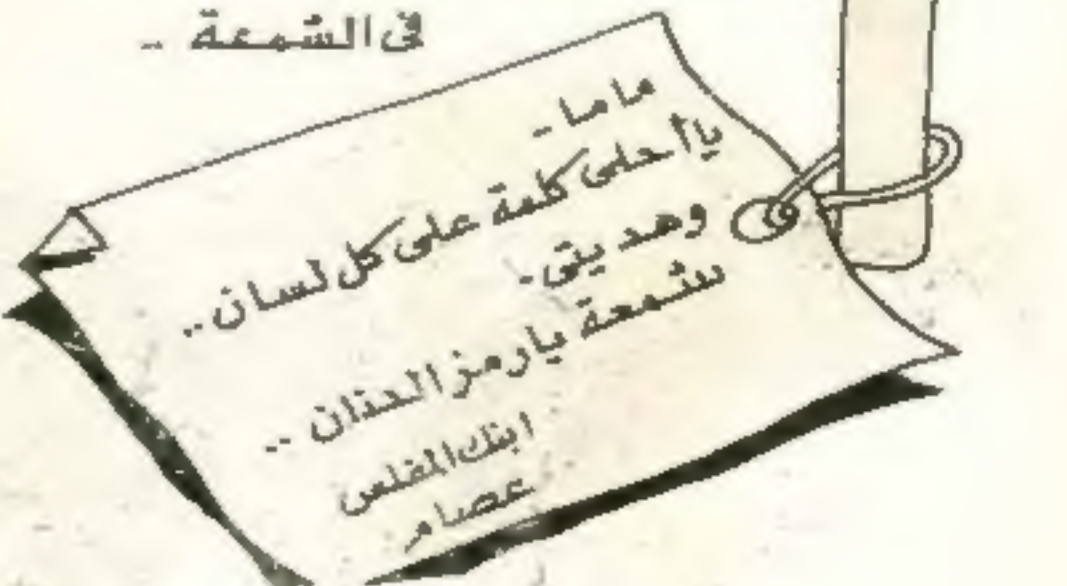 في الشمعة -
ماما -
يا أحلى كلمة على كل لسان ..
وهديتى -
شمعة يا رمز الحنان ..
ابنك المفلس
عصام